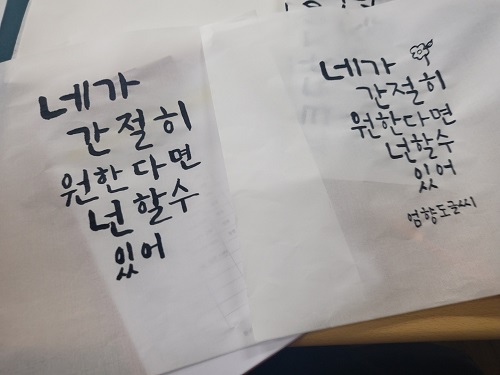 네가
간절히
원한다면
넌할수
있어
네가
간절히
원한다면
넌할수
있어
엄향도글씨